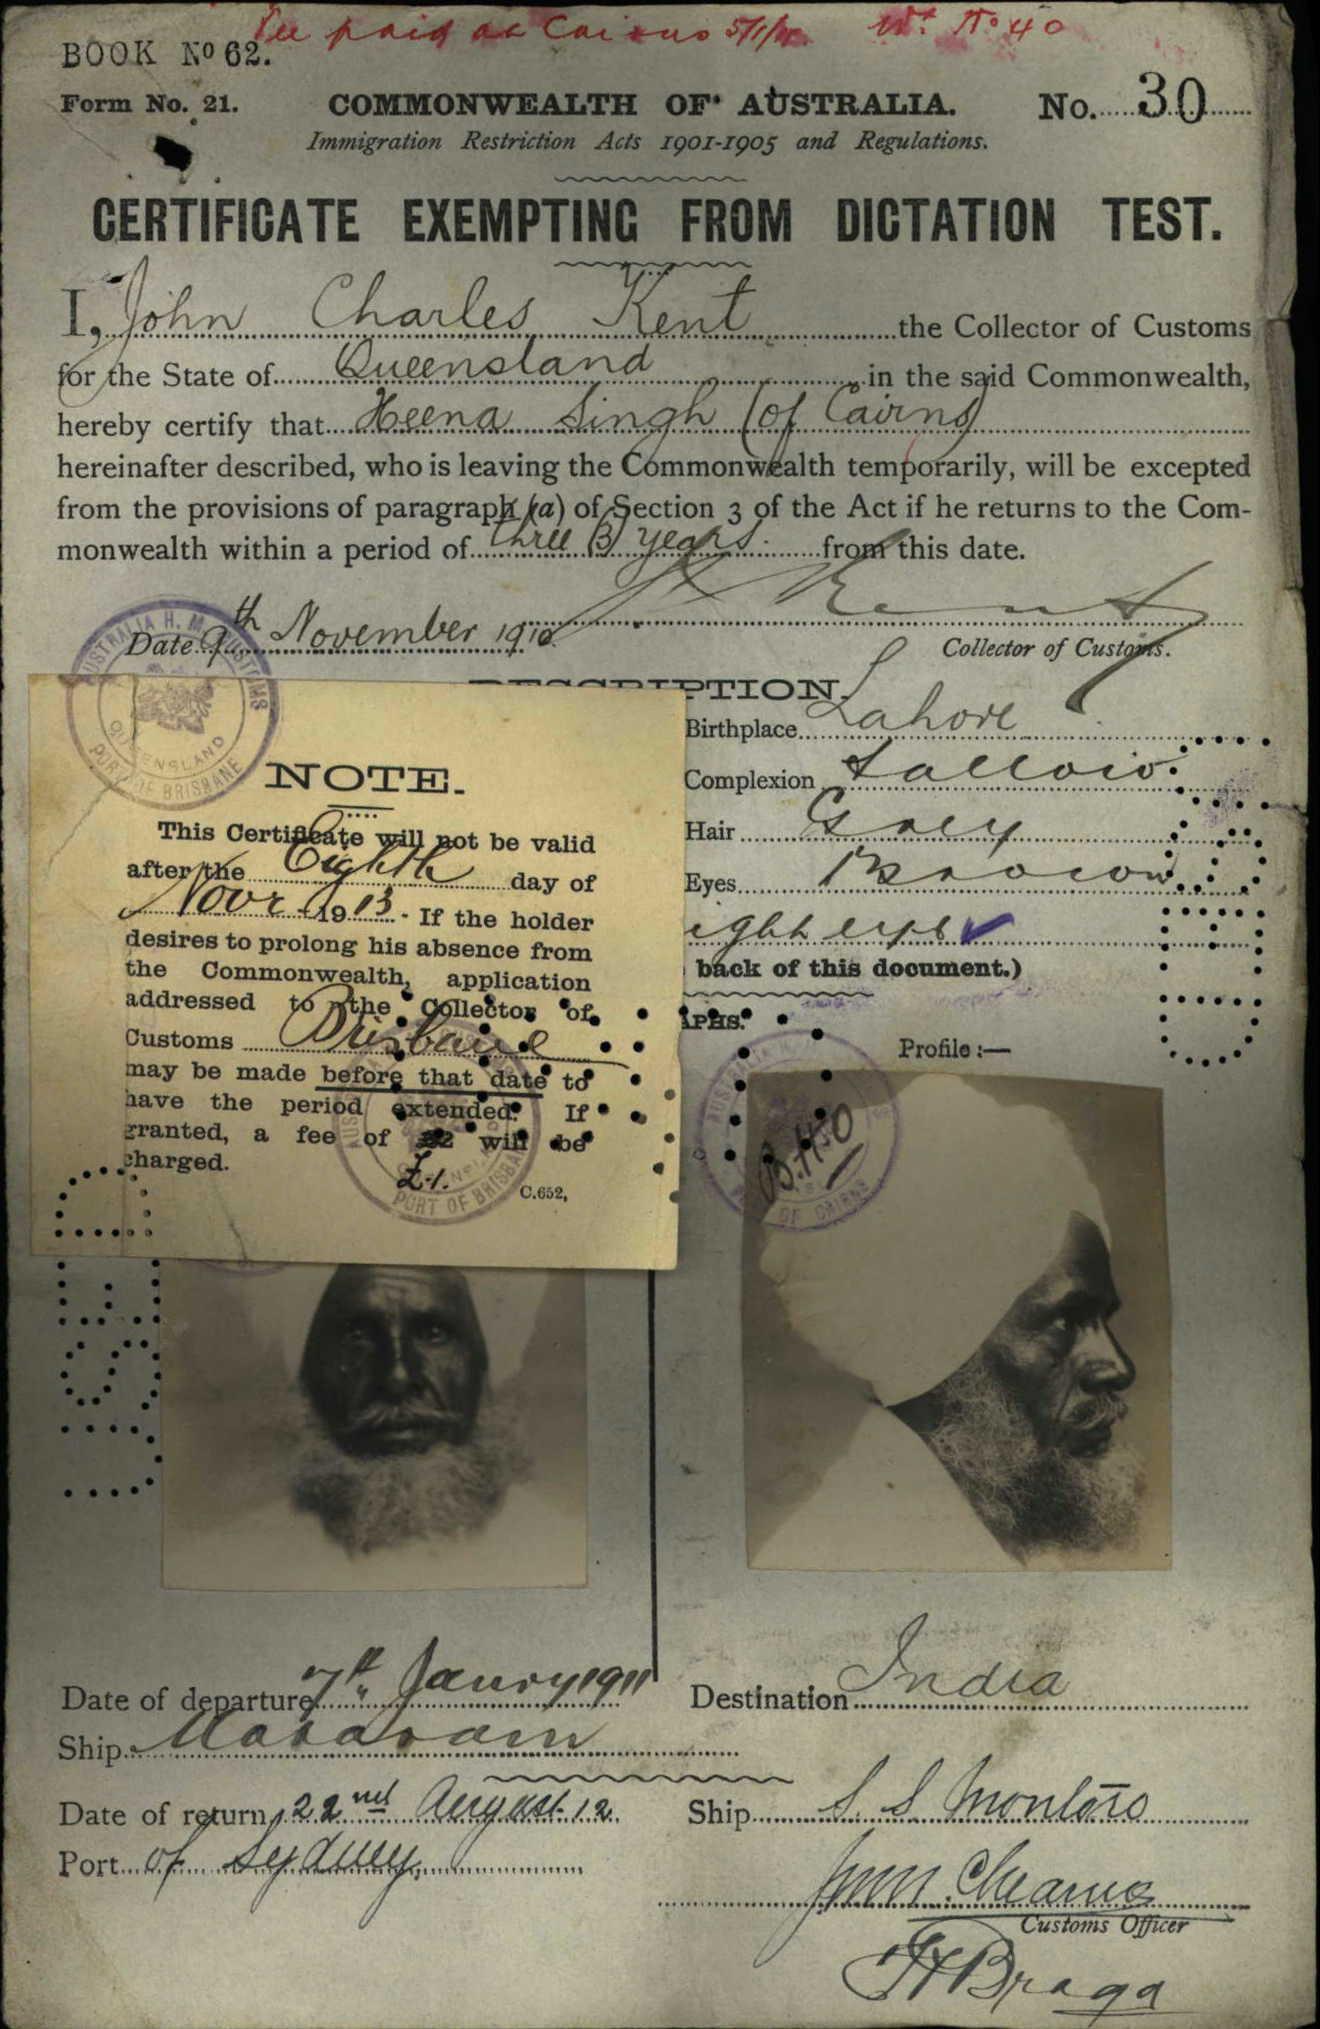 Fee paid at Cairns 5/1/11. No 40
BOOK No 62.
Form No. 21.
COMMONWEALTH OF AUSTRALIA.
No. 30
Immigration Restriction Acts 1901-1905 and Regulations.
CERTIFICATE EXEMPTING FROM DICTATION TEST.
I, John Charles Kent the Collector of Customs
for the State of Queensland in the said Commonwealth,
hereby certify that Heena Singh (of Cairns)
hereinafter described, who is leaving the Commonwealth temporarily, will be excepted
from the provisions of paragraph (a) of Section 3 of the Act if he returns to the Com-
monwealth within a period of three (3) years from this date.
Date 9th November 1910
Kent
Collector of Customs.
AUSTRALIA H. M. CUSTOMS
QUEENSLAND
PORT OF BRISBANE
DESCRIPTION.
Birthplace Lahore
Complexion Sallow.
Hair Grey
Eyes Brown
ight eye
back of this document.)
APHS.
Profile:—
NOTE.
This Certificate will not be valid
after the Eighth day of
Novr 1913. If the holder
desires to prolong his absence from
the Commonwealth, application
addressed to the Collector of
Customs Brisbane
may be made before that date to
have the period extended. If
granted, a fee of £2 will be
charged.
£1.
C.652,
PORT OF BRISBANE
OF CAIRNS
Date of departure 7th Janry 1911
Destination India
Ship Mataram
Date of return 22nd August 12.
Ship S. S Montoro
Port of Sydney.
Customs Officer
Braga